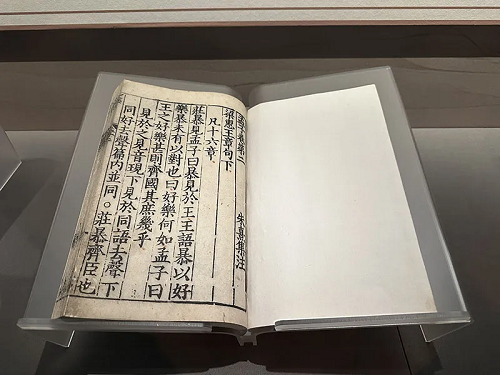 孟子卷第二 朱熹集注
梁惠王章句下
凡十六章
莊暴見孟子曰暴見於王王語暴以好
樂暴未有以對也曰好樂何如孟子曰
王之好樂甚則齊國其庶幾乎
見於之見音現下見於同語去聲下
同好去聲篇內並同。莊暴齊臣也